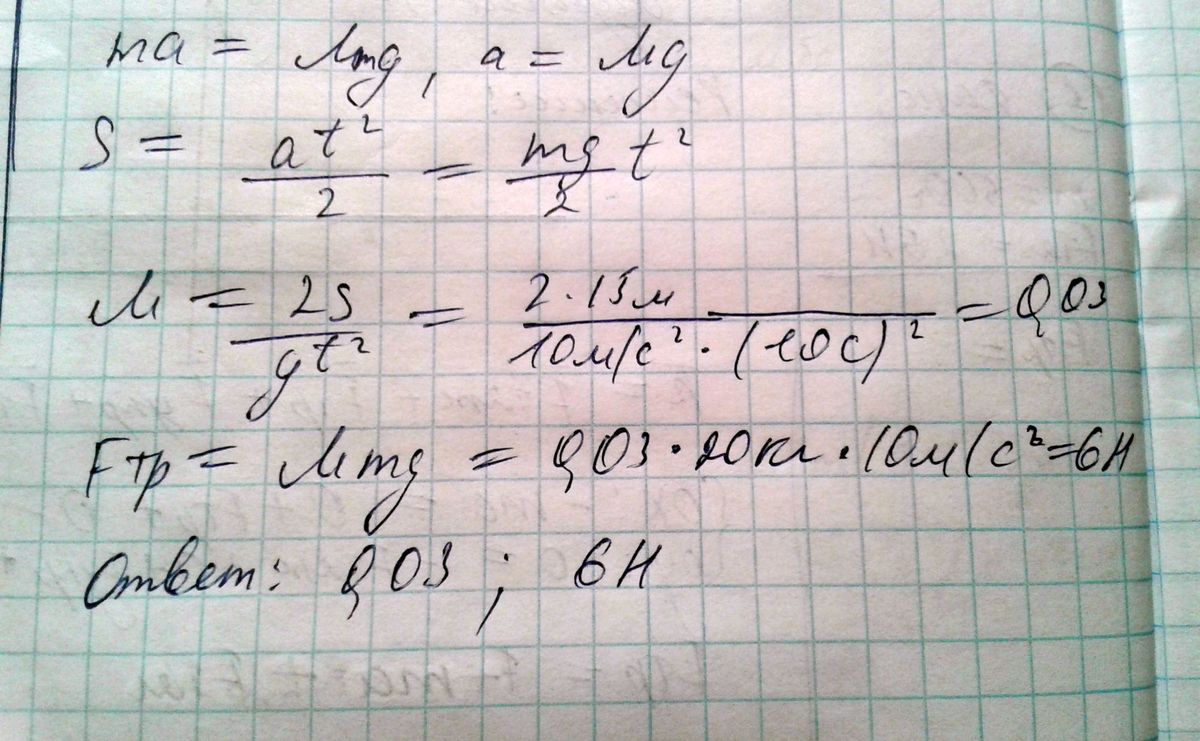 ma = μmg, a = μg
S = at²/2 = mg/2 t²
μ = 2S/gt² = 2·15м/10м/с²·(10с)² = 0,03
Fтр = μmg = 0,03·20кг·10м/с²=6Н
Ответ: 0,03 ; 6Н